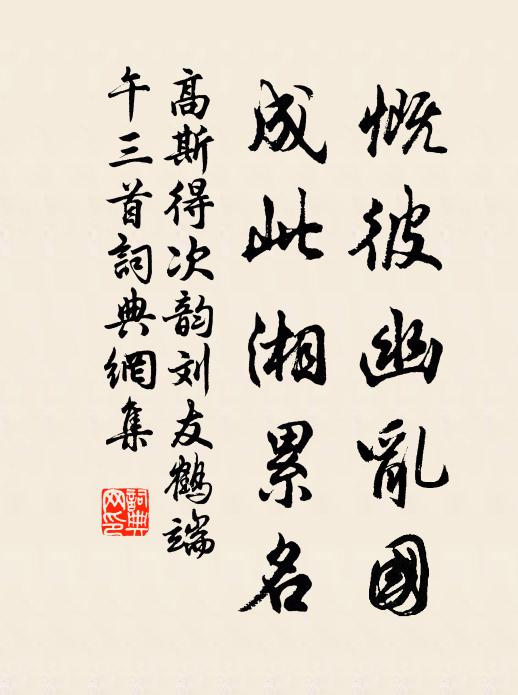 慨彼幽亂國
成此湘累名
高斯得次韵刘友鹤端
午三首詞典網集
詞典
网印